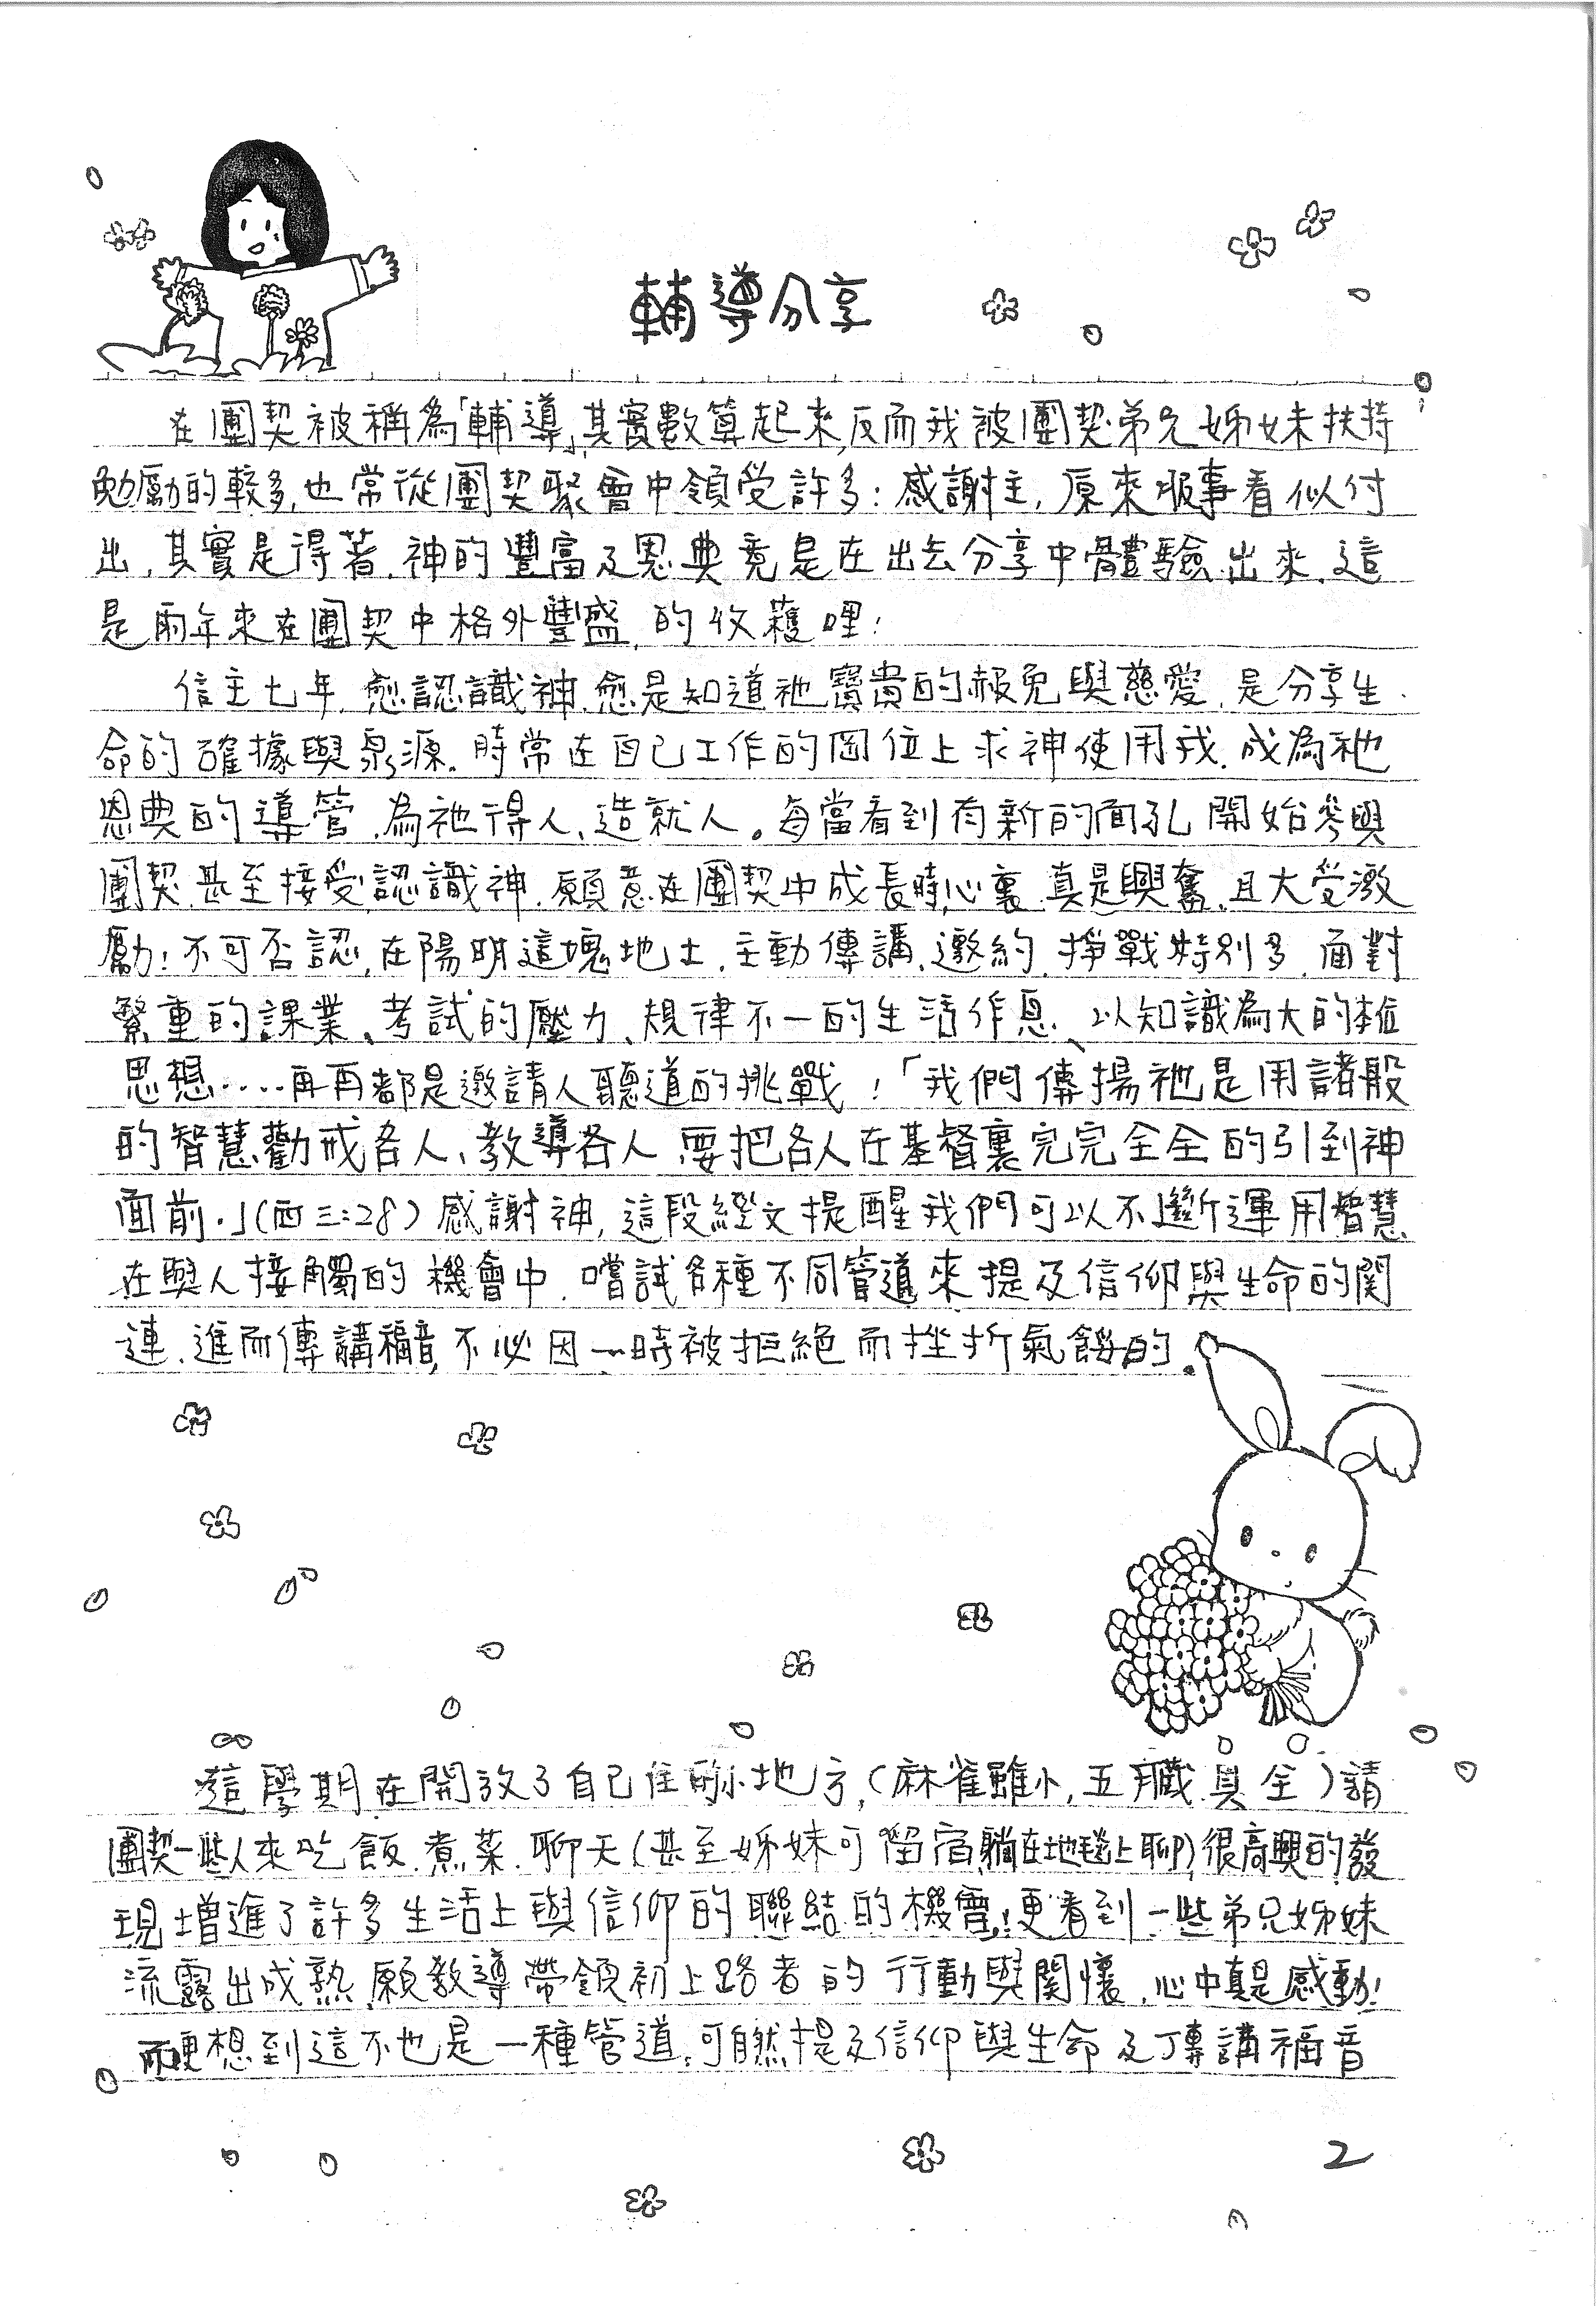 輔導分享
在團契被稱為「輔導」,其實數算起來,反而我被團契弟兄姊妹扶持
勉勵的較多,也常從團契聚會中領受許多:感謝主,原來服事看似付
出,其實是得著.神的豐富及恩典竟是在出去分享中體驗出來.這
是兩年來在團契中格外豐盛,的收穫哩!
信主七年,愈認識神,愈是知道祂寶貴的赦免與慈愛,是分享生
命的確據與泉源.時常在自己工作的岡位上求神使用我.成為祂
恩典的導管.為祂得人、造就人。每當看到有新的面孔開始參與
團契,甚至接受,認識神.願意在團契中成長時,心裏真是興奮,且大受激
勵!不可否認,在陽明這塊地土,主動傳講、邀約,掙戰特別多.面對
繁重的課業、考試的壓力、規律不一的生活作息、以知識為大的本位
思想....再再都是邀請人聽道的挑戰!「我們傳揚祂是用諸般
的智慧勸戒各人、教導各人,要把各人在基督裏完完全全的引到神
面前.」(西三:28)感謝神,這段經文提醒我們可以不斷運用智慧
在與人接觸的機會中.嚐試各種不同管道來提及信仰與生命的関
連.進而傳講福音,不必因一時被拒絕而挫折氣餒的.
這學期在開放了自己住的小地方,(麻雀雖小,五臟具全)請
團契一些人來吃飯.煮菜.聊天(甚至姊妹可留宿,躺在地毯上聊),很高興的發
現增進了許多生活上與信仰的聯結的機會!更看到一些弟兄姊妹
流露出成熟,願教導帶領初上路者的行動與関懷.心中真是感動!
而更想到這不也是一種管道,可自然提及信仰與生命及傳講福音
2